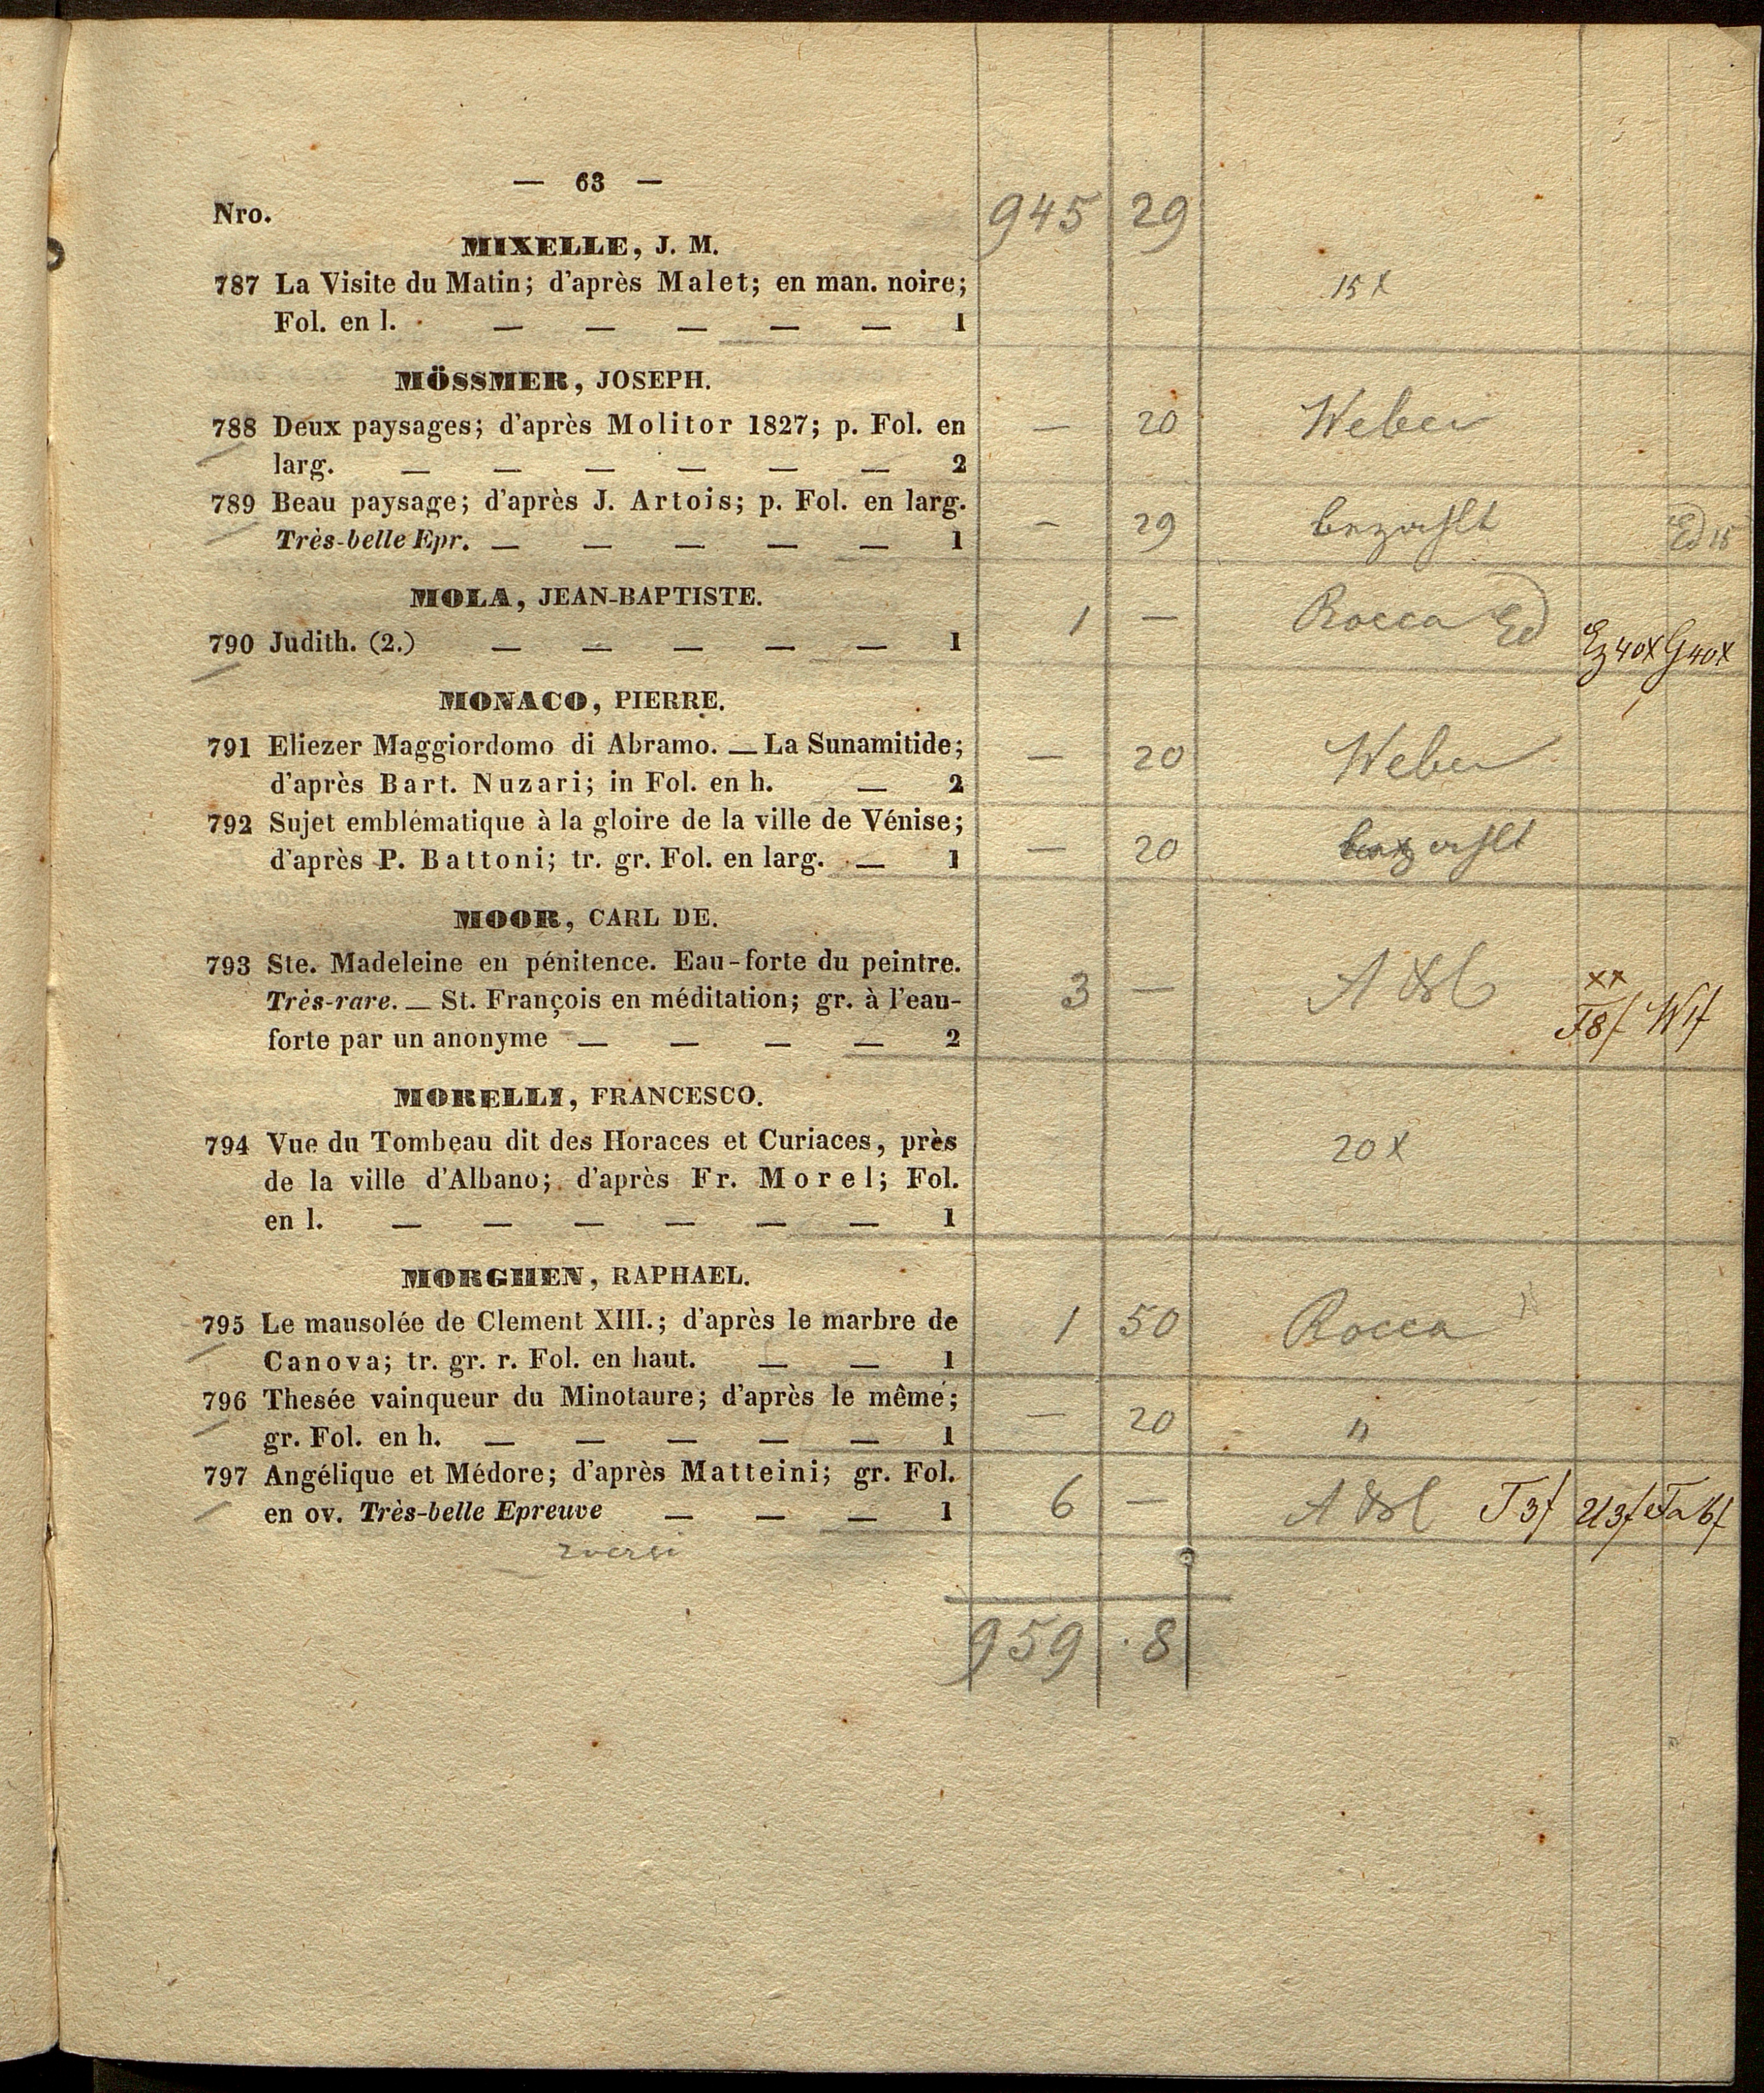 — 63 —
Nro. 945 29
MIXELLE, J. M.
787 La Visite du Matin; d'après Malet; en man. noire; 15 x
Fol. en l. — — — — — 1
MÖSSMER, JOSEPH.
788 Deux paysages; d'après Molitor 1827; p. Fol. en — 20 Weber
larg. — — — — — — 2
789 Beau paysage; d'après J. Artois; p. Fol. en larg. — 29 bezahlt Ed 15
Très-belle Epr. — — — — — 1
MOLA, JEAN-BAPTISTE.
790 Judith. (2.) — — — — — 1 1 — Rocca Ed 40x G 40x
MONACO, PIERRE.
791 Eliezer Maggiordomo di Abramo. — La Sunamitide; — 20 Weber
d'après Bart. Nuzari; in Fol. en h. — 2
792 Sujet emblématique à la gloire de la ville de Vénise; — 20 bezahlt
d'après P. Battoni; tr. gr. Fol. en larg. — 1
MOOR, CARL DE.
793 Ste. Madeleine en pénitence. Eau-forte du peintre. 3 — xx
Très-rare. — St. François en méditation; gr. à l'eau- T 8f W 1f
forte par un anonyme — — — — 2
MORELLI, FRANCESCO.
794 Vue du Tombeau dit des Horaces et Curiaces, près 20 x
de la ville d'Albano; d'après Fr. Morel; Fol.
en l. — — — — — — 1
MORGHEN, RAPHAEL.
795 Le mausolée de Clement XIII.; d'après le marbre de 1 50 Rocca
Canova; tr. gr. r. Fol. en haut. — — 1
796 Thesée vainqueur du Minotaure; d'après le même; — 20 "
gr. Fol. en h. — — — — — 1
797 Angélique et Médore; d'après Matteini; gr. Fol. 6 — T 3f
en ov. Très-belle Epreuve — — — 1
959 . 8